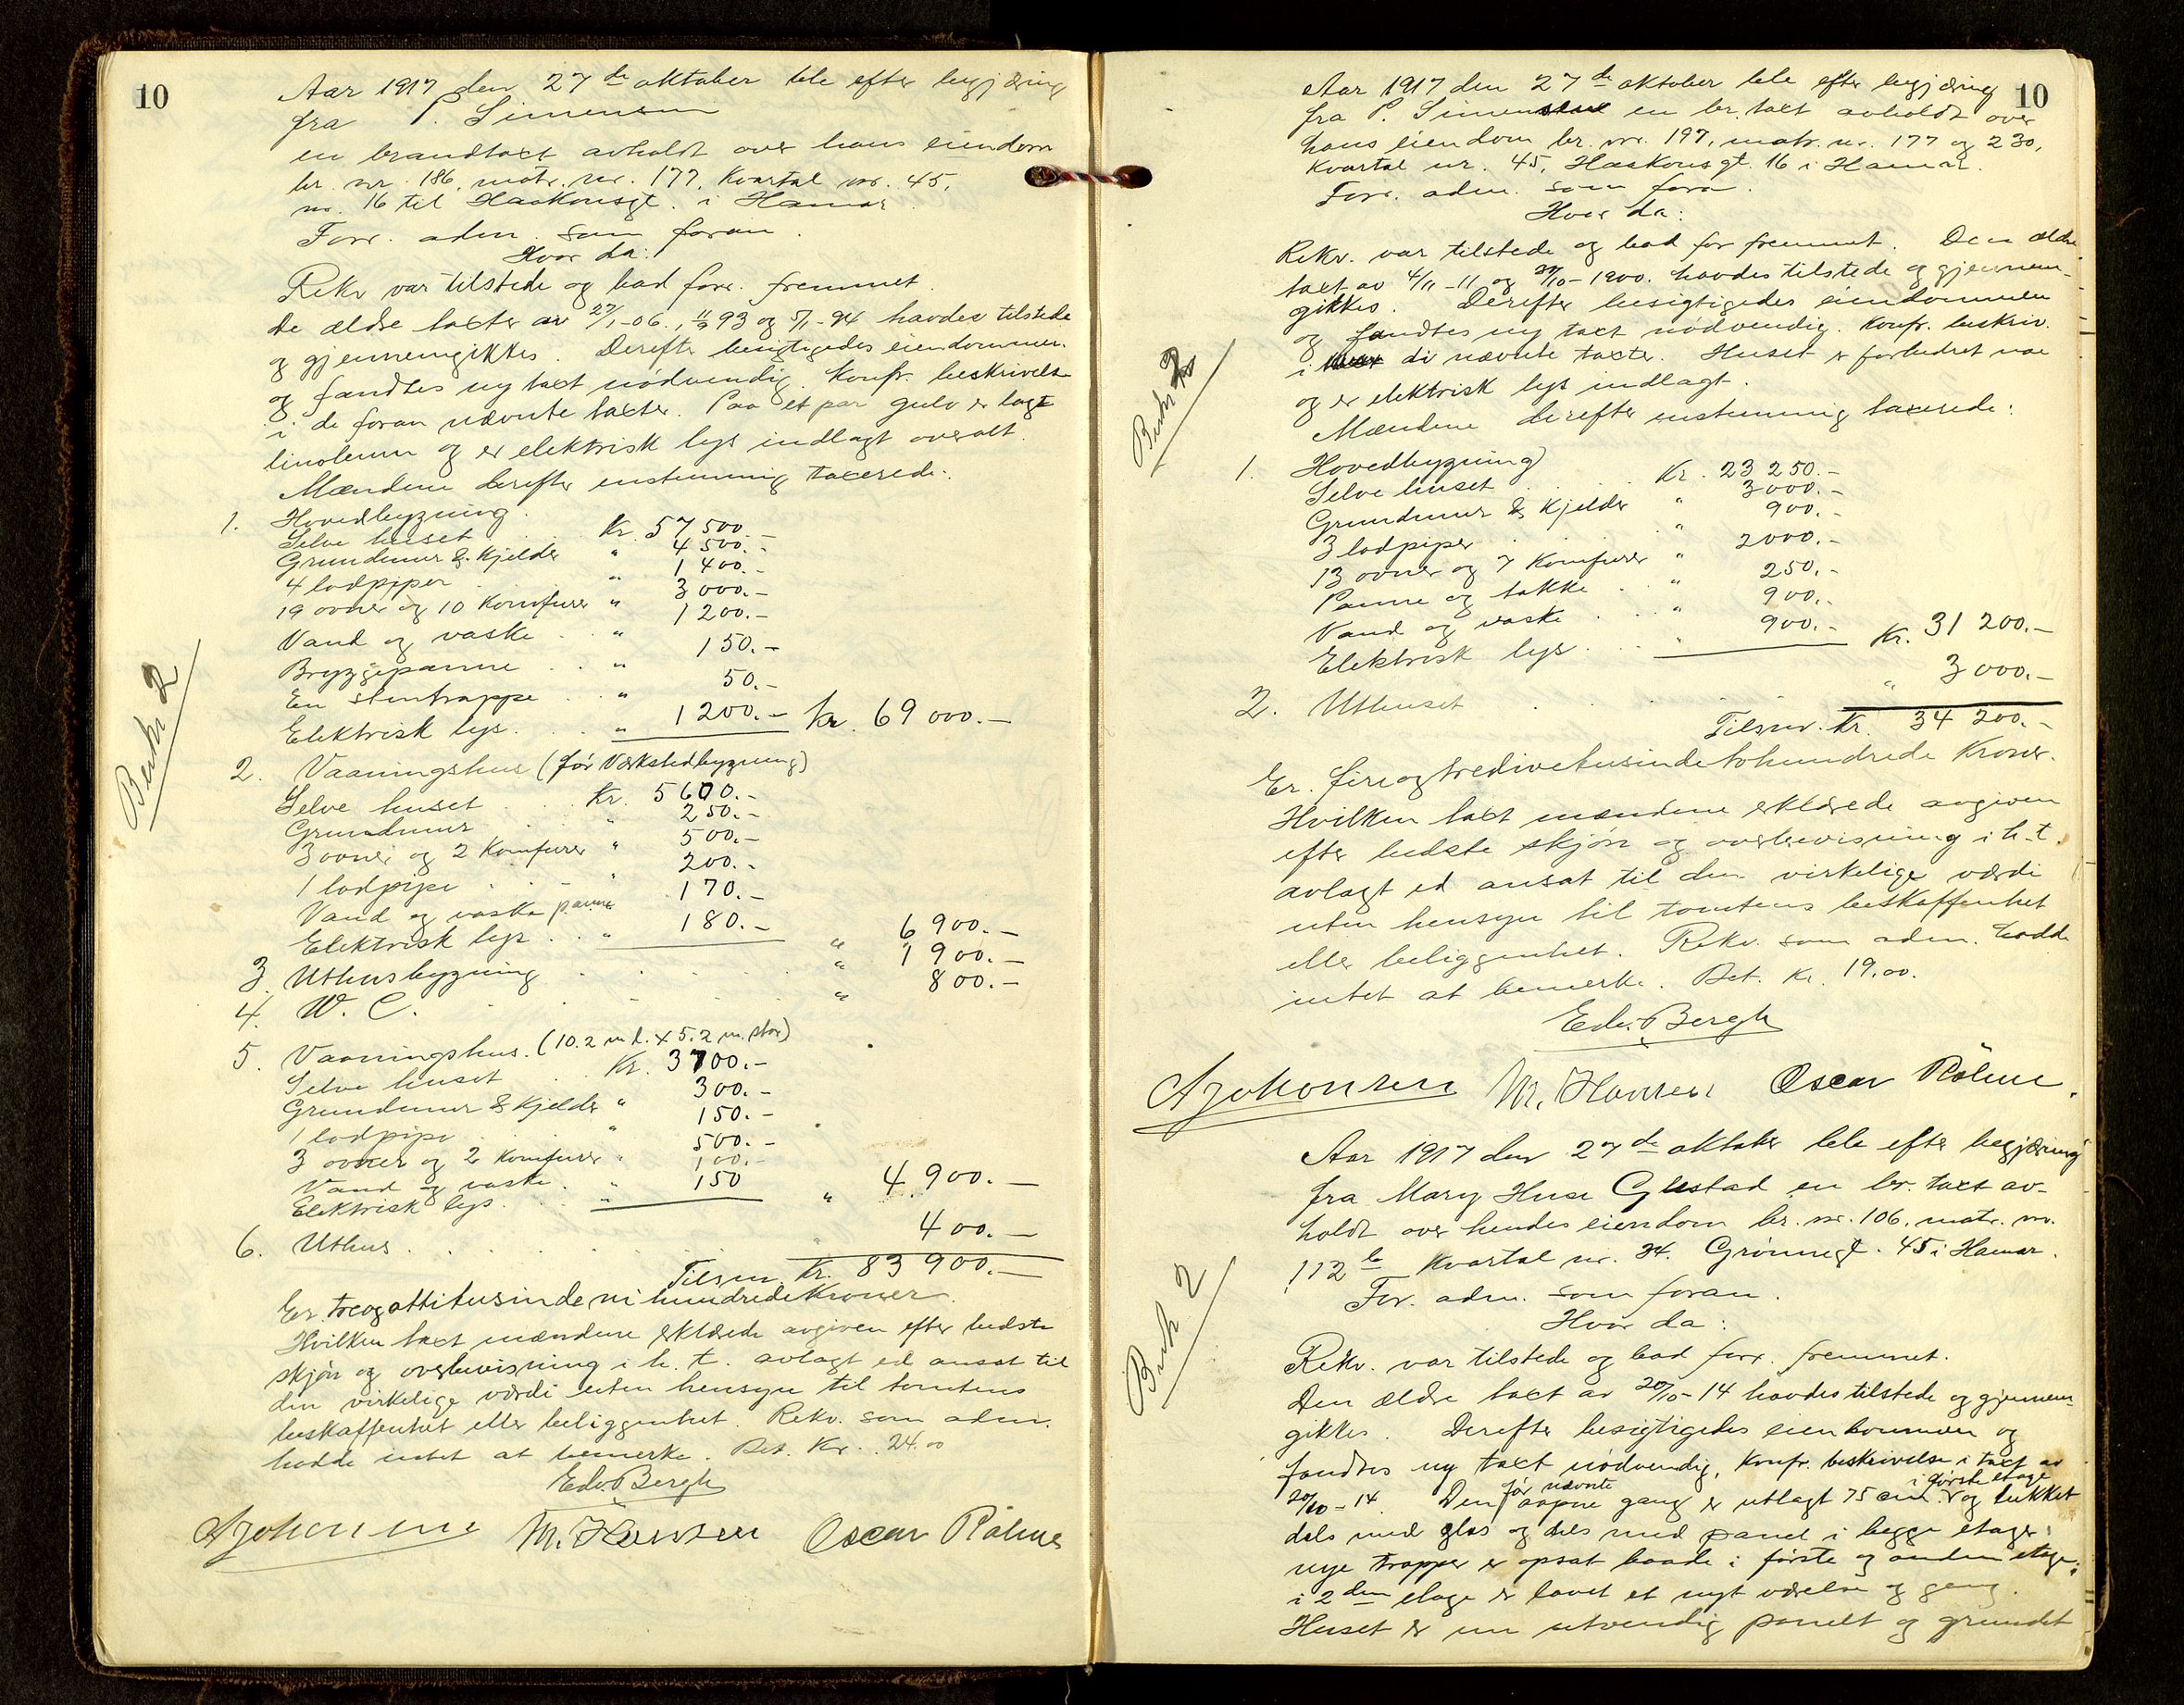 10
Aar 1917 den 27de oktober ble efter begjæring
fra P. Simensen
en brandtaxt avholdt over hans eiendom
br. nr. 186, matr. nr. 177, Kvartal nr. 45,
nr. 16 til Haakonsgt. i Hamar.
Forr. adm. som foran.
Hvor da:
Rekv. var tilstede og bad forr. fremmet.
De ældre taxter av 27/1-06., 11/9 93 og 5/1-94 havdes tilstede
og gjennemgikkes. Derefter besigtigedes eiendommen
og fandtes ny taxt nödvendig. Konfr. beskrivelse
i de foran nævnte taxter. Paa et par gulv er lagt
linoleum og er elektrisk lys indlagt overalt.
Mændene derefter enstemmig taxerede:
1. Hovedbygning.
Selve huset . . Kr. 57 500.-
Grundmur & Kjelder " 4 500.-
4 lodpiper . " 1 400.-
19 ovner og 10 Komfurer " 3 000.-
Vand og vaske . . " 1 200.-
Bryggepanne . . " 150.-
En stentrappe . . " 50.-
Elektrisk lys. . . " 1 200.- Kr. 69 000.-
2. Vaaningshus (før Værkstedbygning)
Selve huset . . Kr. 5 600.-
Grundmur . . " 250.-
3 ovner og 2 Komfurer " 500.-
1 lodpipe . . " 200.-
Vand og vaske panne 170.-
Elektrisk lys . . " 180.- " 6 900.-
3. Uthusbygning . . . . " 1 900.-
4. W. C. . . . . . " 800.-
5. Vaaningshus. (10.2 m l. x 5.2 m. stor)
Selve huset . Kr. 3 700.-
Grundmur & Kjelder " 300.-
1 lodpipe . . " 150.-
3 ovner og 2 Komfurer " 500.-
Vand og vaske. . " 100.-
Elektrisk lys. . . " 150 " 4 900.-
6. Uthus . . . . . " 400.-
Tilsm. Kr. 83 900.-
Er. treogottitusindenihundredeKroner.
Hvilken taxt mændene erklærede avgiven efter bedste
skjön og overbevisning i h. t. avlagt ed ansat til
den virkelige værdi uten hensyn til tomtens
beskaffenhet eller beliggenhet. Rekv. som adm.
hadde intet at bemerke. Bet. Kr. 24.00
Edv. Bergh
A Johansen M. Hansen Oscar Röhme
Berkr 2
10
Aar 1917 den 27de oktober ble efter begjæring
fra P. Simensen en br. taxt avholdt over
hans eiendom br. nr. 197, matr. nr. 177 og 230,
Kvartal nr. 45, Haakonsgt. 16 i Hamar.
Forr. adm. som foran.
Hvor da:
Rekv. var tilstede og bad forr fremmet. Den ældre
taxt av 4/11-11 og 30/10-1900. havdes tilstede og gjennem-
gikkes. Derefter besigtigedes eiendommen
og fandtes ny taxt nödvendig. Konfr. beskriv.
i de nævnte taxter. Huset er forbedret noe
og er elektrisk lys indlagt.
Mændene derefter enstemmig taxerede:
1. Hovedbygning
Selve huset . . Kr. 23 250.-
Grundmur & Kjelder " 3 000.-
3 lodpiper . . " 900.-
13 ovner og 7 Komfurer " 2000.-
Panne og takke . " 250.-
Vand og vaske . . " 900.-
Elektrisk lys . . " 900.- Kr. 31 200.-
2. Uthuset . . . . " 3 000.-
Tilsm. Kr. 34 200.-
Er. fireogtredivetusindetohundrede Kroner.
Hvilken taxt mændene erklærede avgiven
efter bedste skjön og overbevisning i h. t.
avlagt ed ansat til den virkelige værdi
uten hensyn til tomtens beskaffenhet
eller beliggenhet. Rekv. som adm. hadde
intet at bemerke. Bet. Kr. 19.00.
Edv. Bergh
A Johansen M. Hansen Oscar Röhme.
Aar 1917 den 27de oktober ble efter begjæring
fra Mary Huse Gustad en br. taxt av-
holdt over hendes eiendom br. nr. 106, matr. nr.
112 b Kvartal nr. 34. Grönnegt. 45 i Hamar.
For. adm. som foran.
Hvor da:
Rekv. var tilstede og bad forr. fremmet.
Den ældre taxt av 20/10-14 havdes tilstede og gjennem-
gikkes. Derefter besigtigedes eiendommen og
fandtes ny taxt nödvendig, Konfr. beskrivelse i taxt av
20/10-14 Den før nævnte aapne gang er utlagt 75 cm. i første etage og lukket
dels med glas og dels med panel i begge etager;
nye trapper er opsat baade i förste og anden etage;
i 2den etage er lavet et nyt værelse og gang.
Huset er nu utvendig panelt og grundet
Berkr 2
Berkr 2